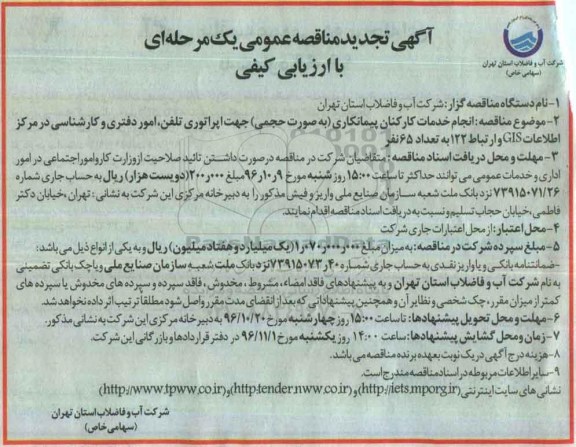 آگهی تجدید مناقصه عمومی یک مرحله‌ای
با ارزیابی کیفی
شرکت آب و فاضلاب استان تهران
(سهامی خاص)
۱- نام دستگاه مناقصه گزار: شرکت آب و فاضلاب استان تهران
۲- موضوع مناقصه: انجام خدمات کارکنان پیمانکاری (به صورت حجمی) جهت اپراتوری تلفن، امور دفتری و کارشناسی در مرکز
اطلاعات GIS و ارتباط ۱۲۲ به تعداد ۶۵ نفر
۳- مهلت و محل دریافت اسناد مناقصه: متقاضیان شرکت در مناقصه درصورت داشتن تائید صلاحیت از وزارت کار و امور اجتماعی در امور
اداری و خدمات عمومی می توانند حداکثر تا ساعت ۱۵:۰۰ روز شنبه مورخ ۹ر۱۰ر۹۶ مبلغ ۰۰۰ر۲۰۰ (دویست هزار) ریال به حساب جاری شماره
۷۳۹۱۵۰۷۱/۲۶ نزد بانک ملت شعبه سازمان صنایع ملی واریز و فیش مذکور را به دبیرخانه مرکزی این شرکت به نشانی: تهران، خیابان دکتر
فاطمی، خیابان حجاب تسلیم و نسبت به دریافت اسناد مناقصه اقدام نمایند.
۴- محل اعتبار: از محل اعتبارات جاری شرکت
۵- مبلغ سپرده شرکت در مناقصه: به میزان مبلغ ۰۰۰ر۰۰۰ر۰۷۰ر۱ (یک میلیارد و هفتاد میلیون) ریال و به یکی از انواع ذیل می باشد:
-ضمانتنامه بانکی و یا واریز نقدی به حساب جاری شماره ۴۰ر۷۳۹۱۵۰۷۳ نزد بانک ملت شعبه سازمان صنایع ملی و یا چک بانکی تضمینی
به نام شرکت آب و فاضلاب استان تهران و به پیشنهادهای فاقد امضاء، مشروط، مخدوش، فاقد سپرده و سپرده های مخدوش یا سپرده های
کمتر از میزان مقرر، چک شخصی و نظایر آن و همچنین پیشنهاداتی که بعد از انقضای مدت مقرر واصل شود مطلقا ترتیب اثر داده نخواهد شد.
۶- مهلت و محل تحویل پیشنهادها: تا ساعت ۱۵:۰۰ روز چهارشنبه مورخ ۹۶/۱۰/۲۰ به دبیرخانه مرکزی این شرکت به نشانی مذکور.
۷- زمان و محل گشایش پیشنهادها: ساعت ۱۴:۰۰ روز یکشنبه مورخ ۹۶/۱۱/۱ در دفتر قراردادها و بازرگانی این شرکت.
۸- هزینه درج آگهی در یک نوبت بعهده برنده مناقصه می باشد.
۹- سایر اطلاعات مربوطه در اسناد مناقصه مندرج است.
نشانی های سایت اینترنتی (http://iets.mporg.ir) و (http:tender.nww.co.ir) و (http://www.tpww.co.ir)
شرکت آب و فاضلاب استان تهران
(سهامی خاص)